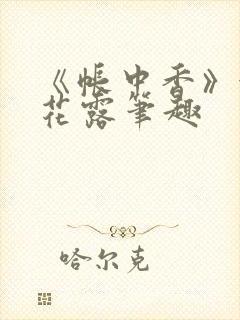 《帐中香》
花露笔趣
哈尔克